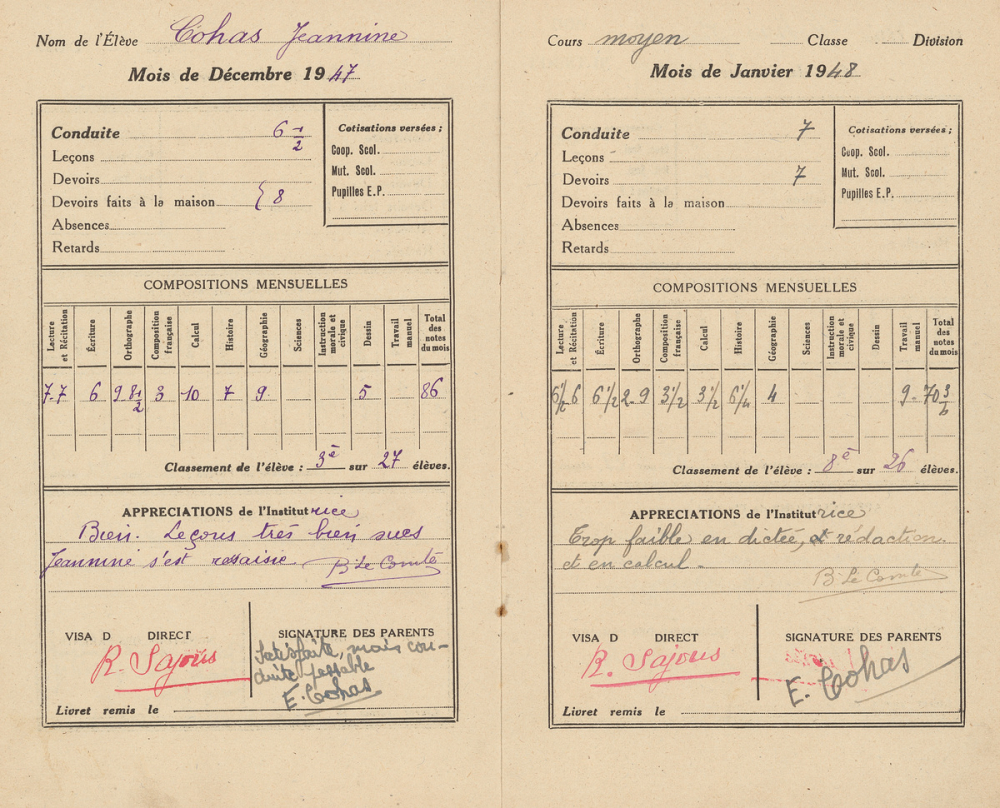 Nom de l'Élève Cohas Jeannine
Mois de Décembre 1947
Conduite 6 1/2
Leçons
Devoirs
Devoirs faits à la maison { 8
Absences
Retards
Cotisations versées ;
Coop. Scol.
Mut. Scol.
Pupilles E.P.
COMPOSITIONS MENSUELLES
Lecture et Récitation
Écriture
Orthographe
Composition française
Calcul
Histoire
Géographie
Sciences
Instruction morale et civique
Dessin
Travail manuel
Total des notes du mois
7.7 6 9 8 1/2 3 10 7 9 5 86
Classement de l'élève : 3è sur 27 élèves.
APPRECIATIONS de l'Institutrice
Bien. Leçons très bien sues
Jeannine s'est ressaisie. B. Le Comte
VISA D DIRECT
R. Sajous
SIGNATURE DES PARENTS
Satisfaite, mais con-
duite
E. Cohas
Livret remis le
Cours moyen Classe Division
Mois de Janvier 1948
Conduite 7
Leçons
Devoirs 7
Devoirs faits à la maison
Absences
Retards
Cotisations versées ;
Coop. Scol.
Mut. Scol.
Pupilles E.P.
COMPOSITIONS MENSUELLES
Lecture et Récitation
Écriture
Orthographe
Composition française
Calcul
Histoire
Géographie
Sciences
Instruction morale et civique
Dessin
Travail manuel
Total des notes du mois
6 6 1/2 2 - 9 3 1/2 3 1/2 6 1/4 4 9 - 70
Classement de l'élève : 8è sur 26 élèves.
APPRECIATIONS de l'Institutrice
Trop faible en dictée, et rédaction
et en calcul.
B. Le Comte
VISA D DIRECT
R. Sajous
SIGNATURE DES PARENTS
E. Cohas
Livret remis le